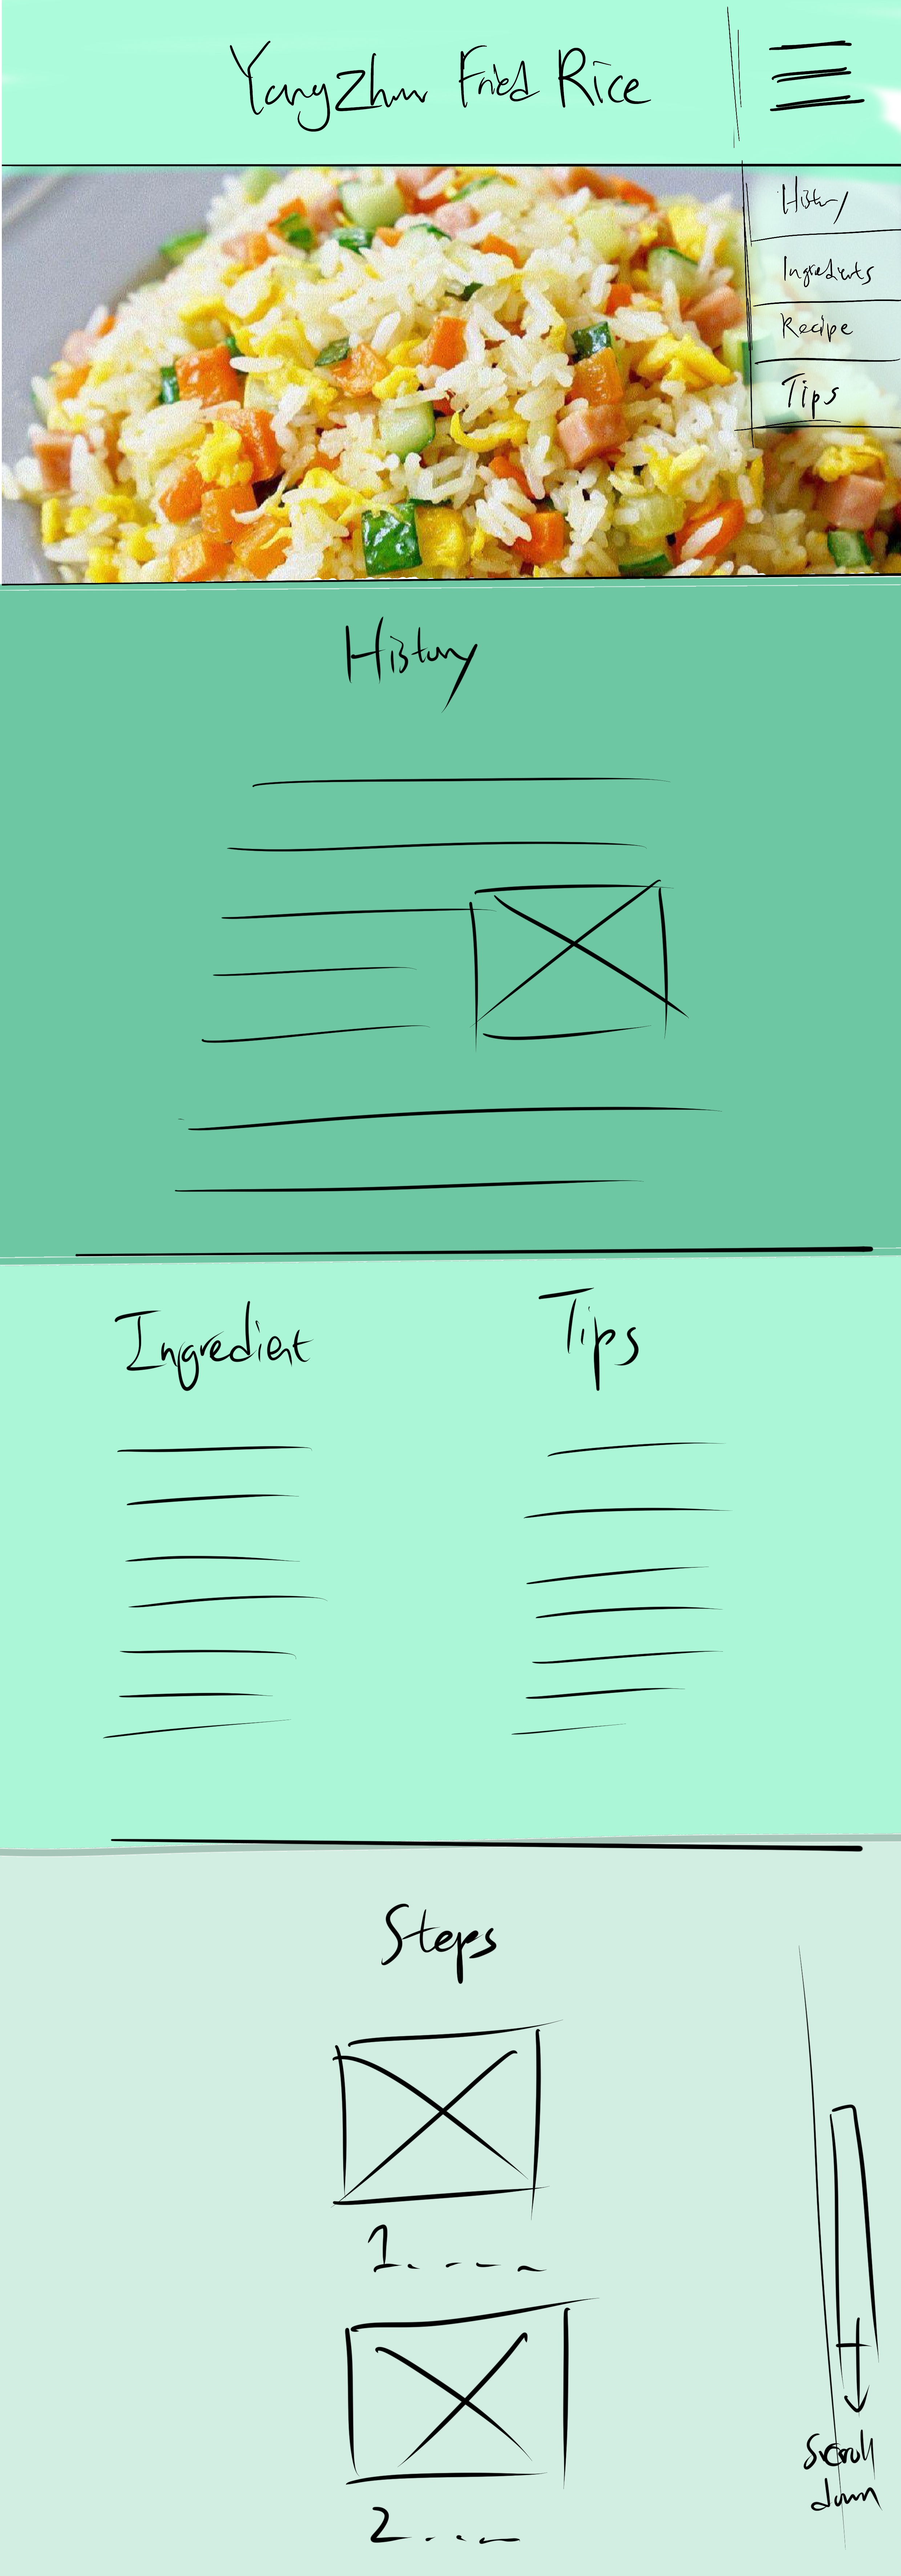 YangZhou Fried Rice
History
Ingredients
Recipe
Tips
History
Ingredient
Tips
Steps
1.
2.
Scroll
down